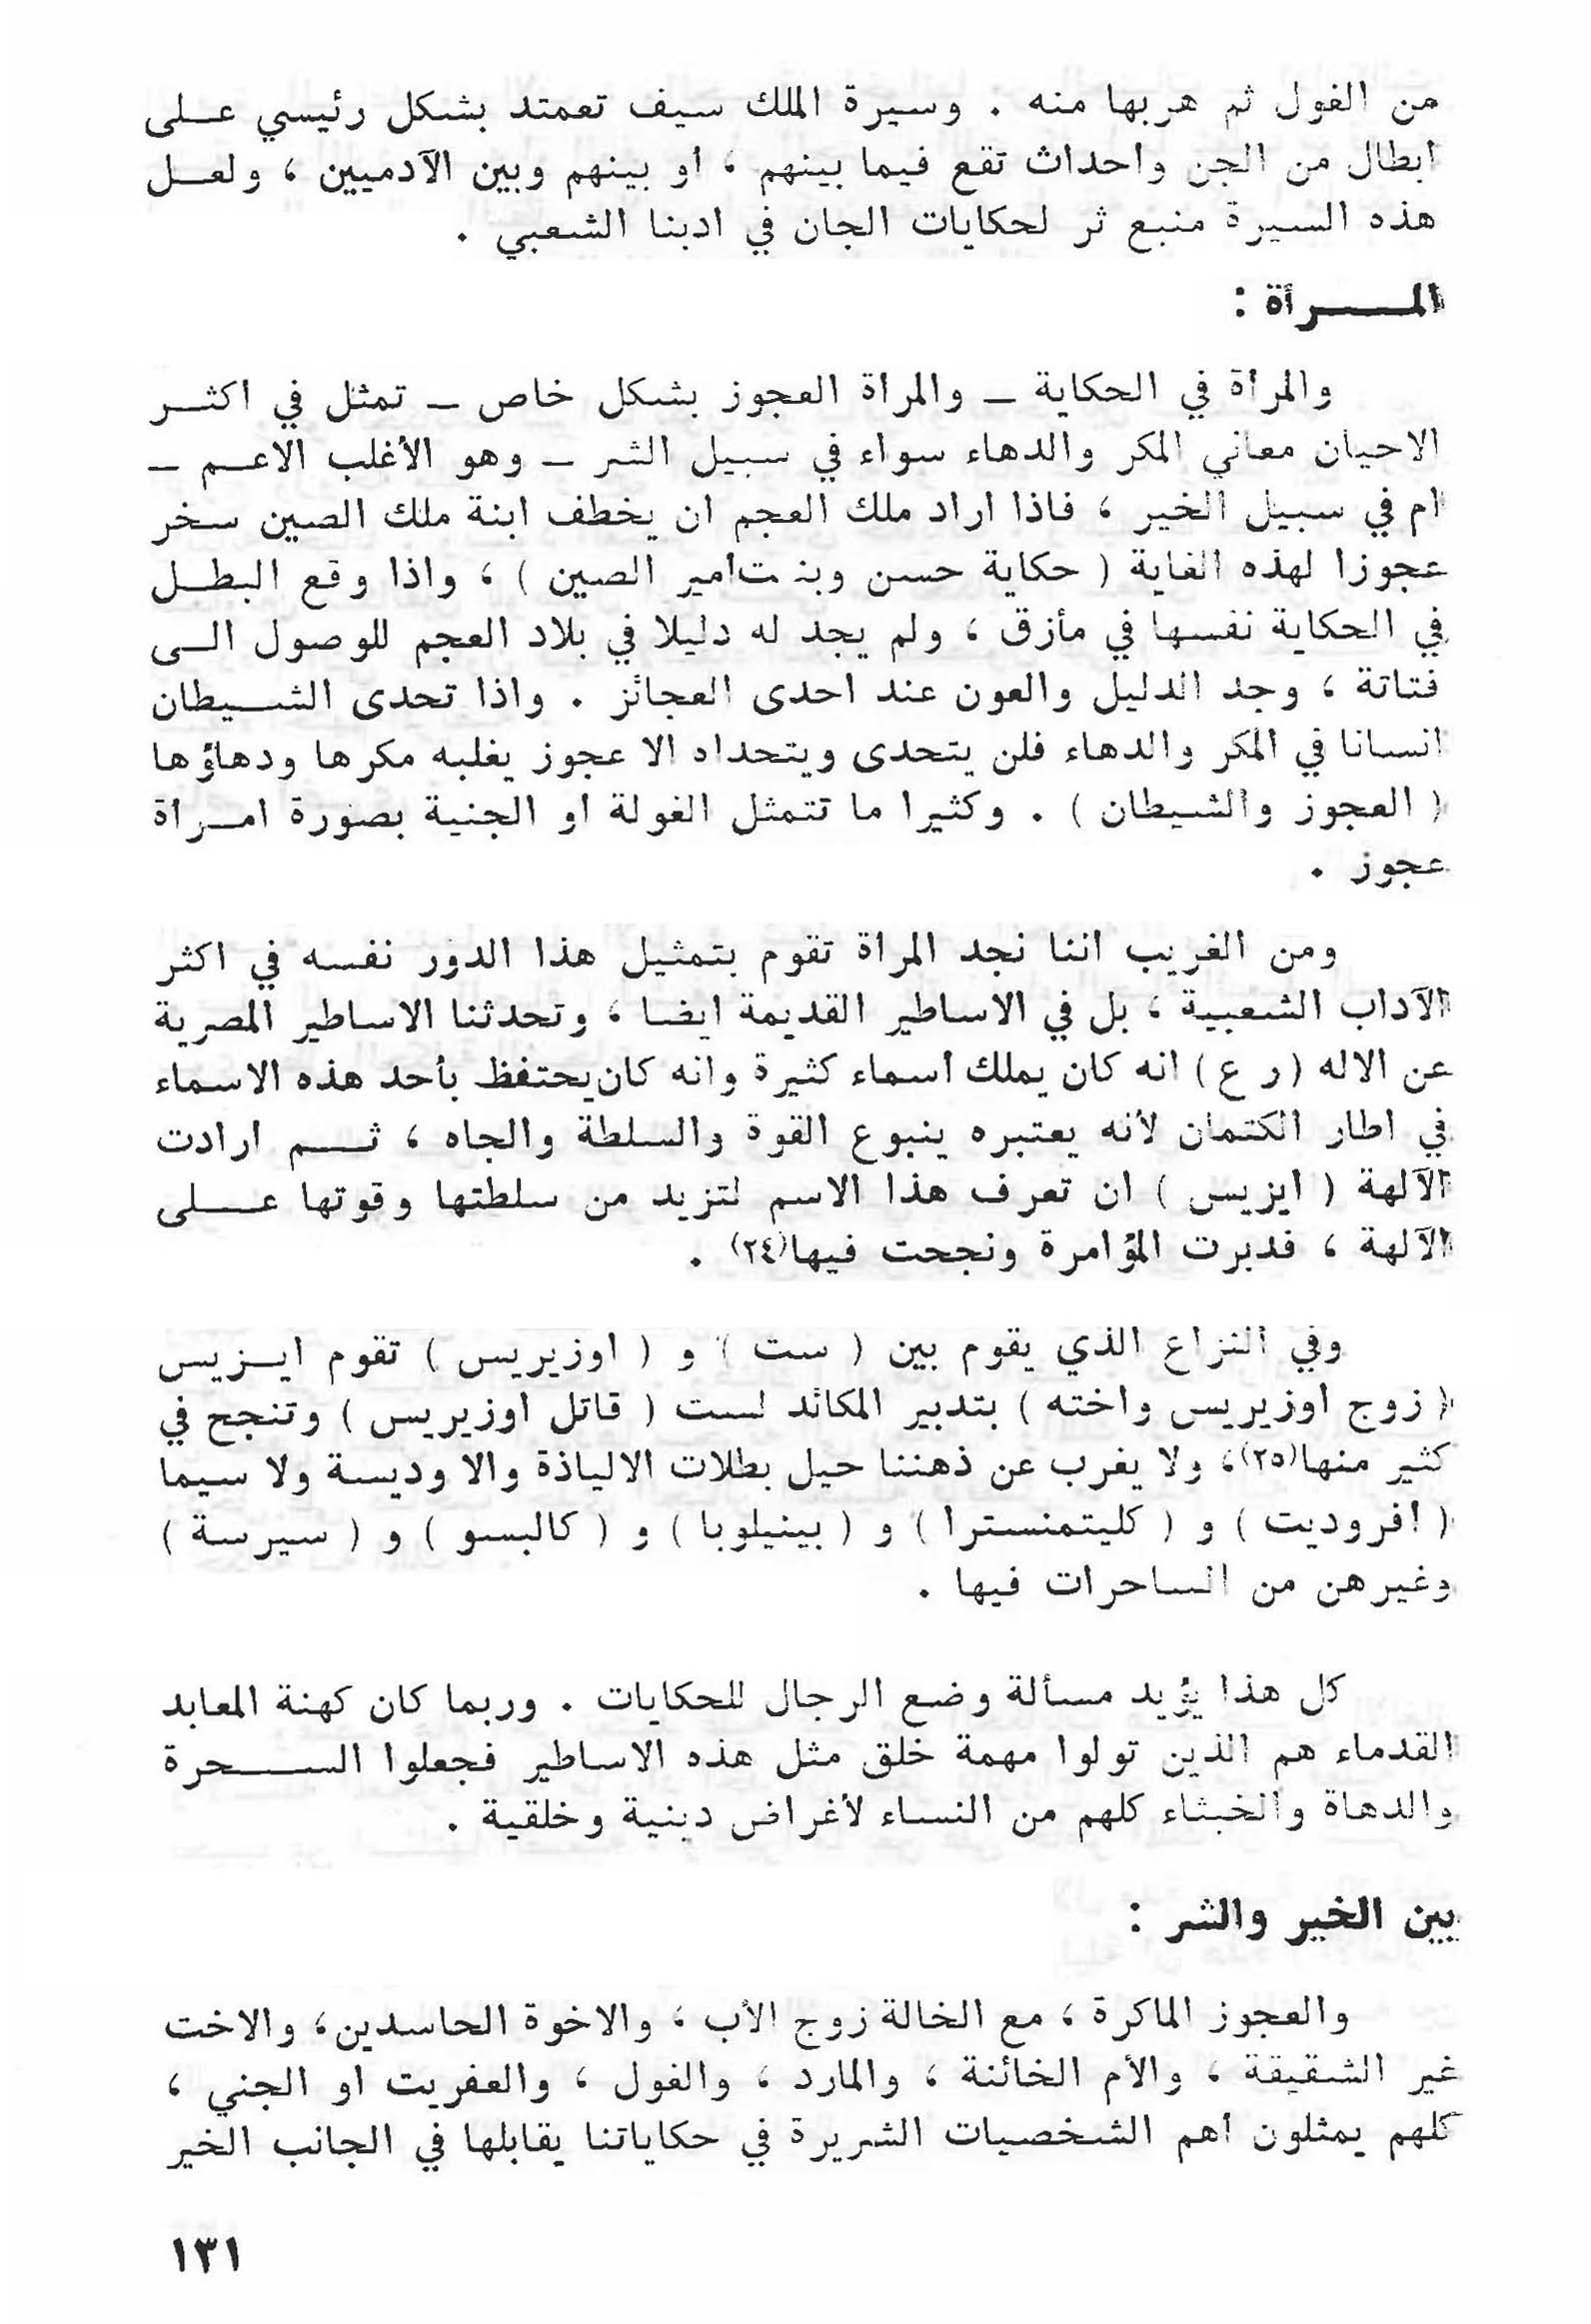 من الغول ثم هربها منه . وسيرة الملك سيف تعمتد بشكل رئيسي على
ابطال من الجن واحداث تقع فيما بينهم ، أو بينهم وبين الآدميين ، ولعل
هذه السيرة منبع ثر لحكايات الجان في ادبنا الشعبي .
المرأة :
والمرأة في الحكاية – والمرأة العجوز بشكل خاص – تمثل في اكثر
الاحيان معاني المكر والدهاء سواء في سبيل الشر – وهو الأغلب الاعم –
ام في سبيل الخير ، فاذا اراد ملك العجم ان يخطف ابنة ملك الصين سخر
عجوزا لهذه الغاية ( حكاية حسن وبنت امير الصين ) ، واذا وقع البطل
في الحكاية نفسها في مأزق ، ولم يجد له دليلا في بلاد العجم للوصول الى
فتاتة ، وجد الدليل والعون عند احدى العجائز . واذا تحدى الشيطان
انسانا في المكر والدهاء فلن يتحدى ويتحداه الا عجوز يغلبه مكرها ودهاؤها
( العجوز والشيطان ) . وكثيرا ما تتمثل الغولة او الجنية بصورة امرأة
عجوز .
ومن الغريب اننا نجد المرأة تقوم بتمثيل هذا الدور نفسه في اكثر
الآداب الشعبية ، بل في الاساطير القديمة ايضا ، وتحدثنا الاساطير المصرية
عن الاله ( ر ع ) انه كان يملك أسماء كثيرة وانه كان يحتفظ بأحد هذه الاسماء
في اطار الكتمان لأنه يعتبره ينبوع القوة والسلطة والجاه ، ثم ارادت
الآلهة ( ايزيس ) ان تعرف هذا الاسم لتزيد من سلطتها وقوتها على
الآلهة ، فدبرت المؤامرة ونجحت فيها(٢٤) .
وفي النزاع الذي يقوم بين ( ست ) و ( اوزيريس ) تقوم ايزيس
( زوج أوزيريس واخته ) بتدبير المكائد لست ( قاتل أوزيريس ) وتنجح في
كثير منها(٢٥)، ولا يغرب عن ذهننا حيل بطلات الالياذة والا وديسة ولا سيما
( أفروديت ) و ( كليتمنسترا ) و ( بينيلوبا ) و ( كالبسو ) و ( سيرسة )
وغيرهن من الساحرات فيها .
كل هذا يؤيد مسألة وضع الرجال للحكايات . وربما كان كهنة المعابد
القدماء هم الذين تولوا مهمة خلق مثل هذه الاساطير فجعلوا السحرة
والدهاة والخبثاء كلهم من النساء لأغراض دينية وخلقية .
بين الخير والشر :
والعجوز الماكرة ، مع الخالة زوج الأب ، والاخوة الحاسدين، والاخت
غير الشقيقة ، والأم الخائنة ، والمارد ، والغول ، والعفريت او الجني ،
كلهم يمثلون أهم الشخصيات الشريرة في حكاياتنا يقابلها في الجانب الخير
١٣١